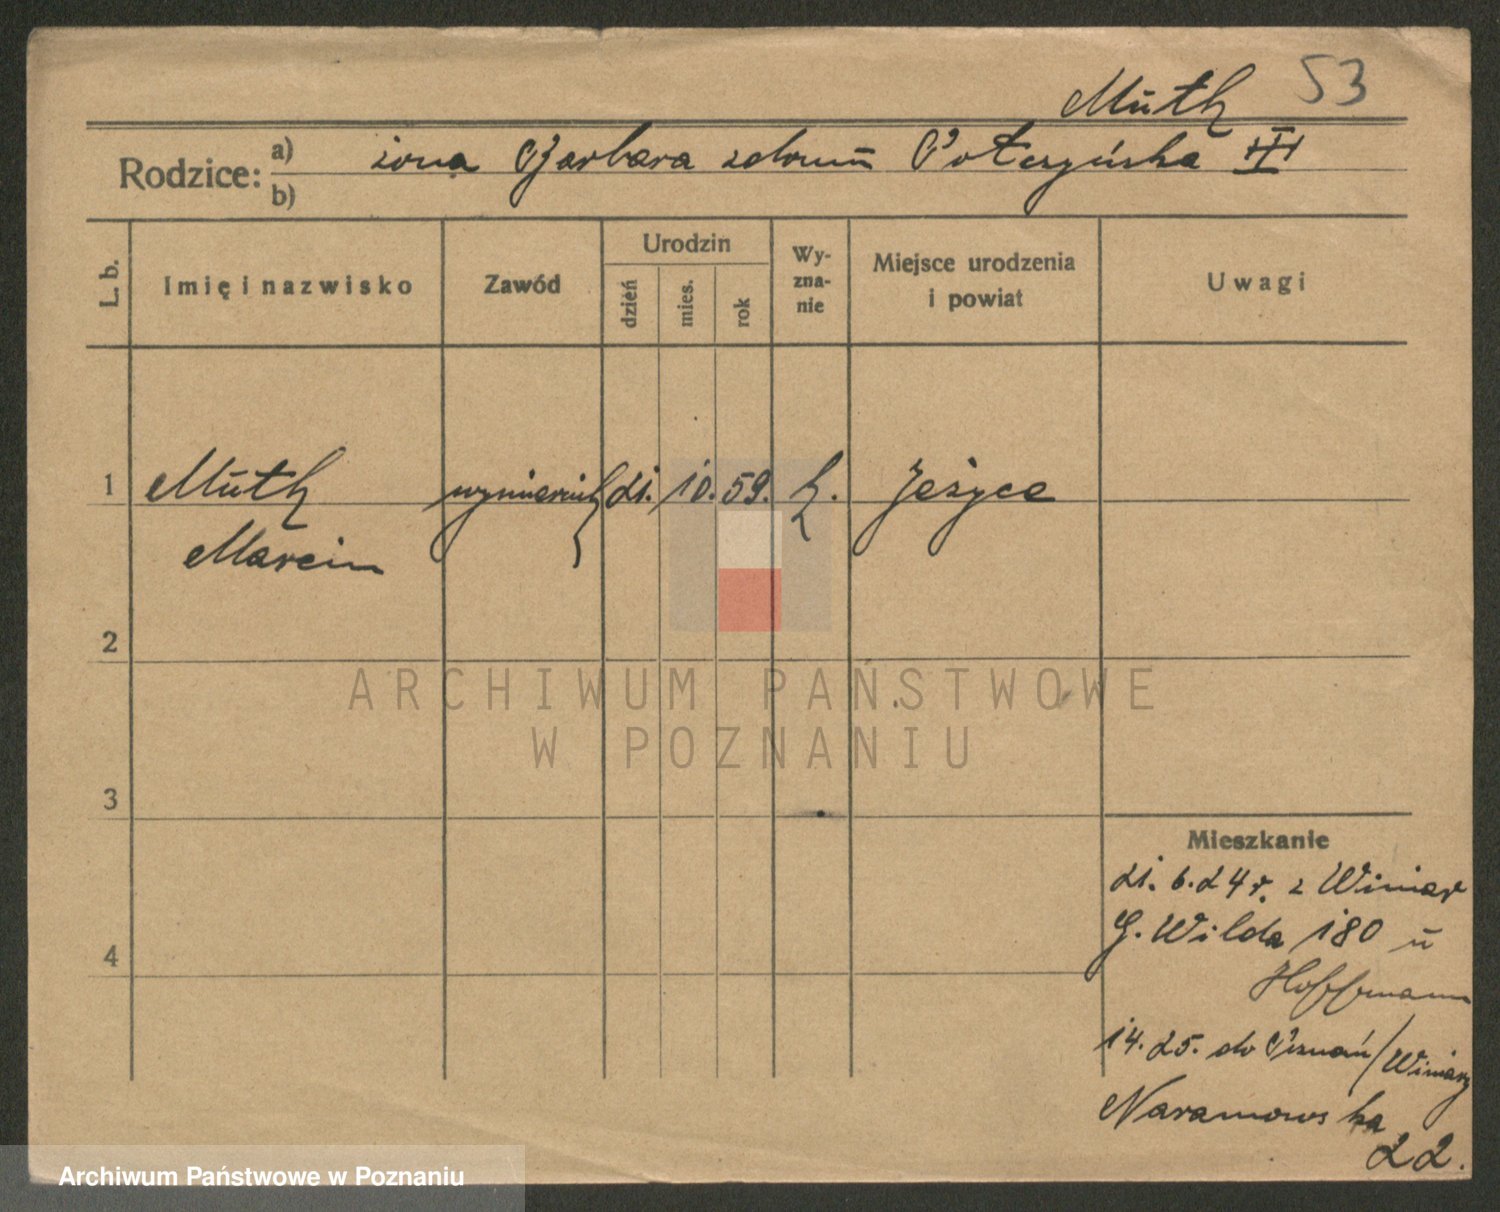 Muth 53
Rodzice: a) żona Barbara z domu Potczyńska III
b)
L. b.
Imię i nazwisko
Zawód
Urodzin
dzień
mies.
rok
Wy-
zna-
nie
Miejsce urodzenia
i powiat
Uwagi
1 Muth wymiernik 21. 10. 59. k. Jeżyce
Marcin
2
3
4
Mieszkanie
21. 6. 24 r. z Winiar
G. Wilda 180 u
Hoffmann
14. 25. do Poznań/Winiary
Naramowska
22.
ARCHIWUM PAŃSTWOWE
W POZNANIU
Archiwum Państwowe w Poznaniu